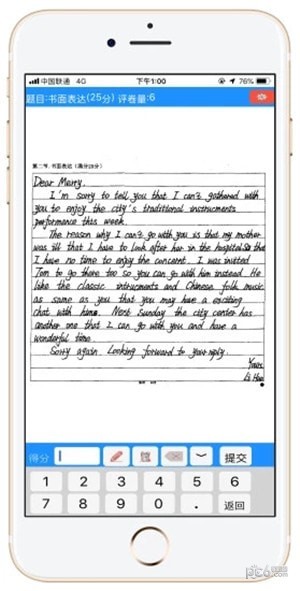 中国联通 4G 下午1:00 76%
题目:书面表达(25分) 评卷量:6
第二节. 书面表达 (满分25分)
Dear Merry,
I'm sorry to tell you that I can't gathered with
you to enjoy the city's traditional instruments
performance this week.
The reason why I can't go with you is that my mother
was ill that I have to look after her in the hospital. So that
I have no time to enjoy the concent. I was invited
Tom to go there too so you can go with him instead. He
like the classic intrucments and Chinese folk music
as same as you that you may have a exciting
chat with hime. Next Sunday the city center has
another one that I can go with you and have a
wonderful time
Sorry again. Looking forward to your reply.
Yours
Li Hua
得分 提交
1 2 3 4 5 6
7 8 9 0 . 返回
pc6.com